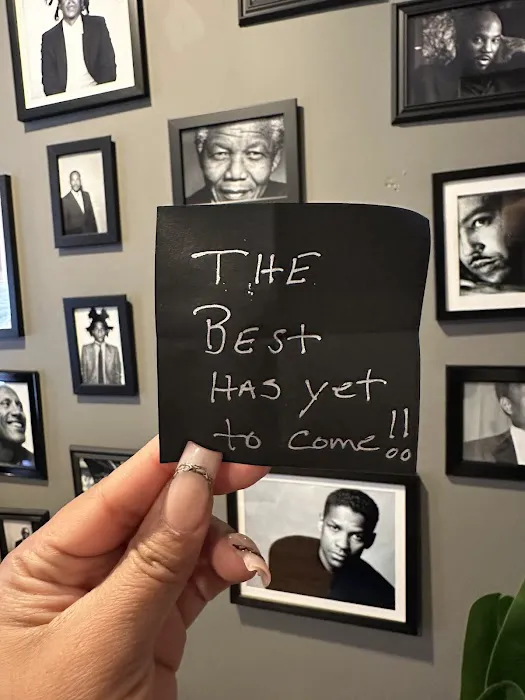 THE
BEST
HAS yet
to come!!